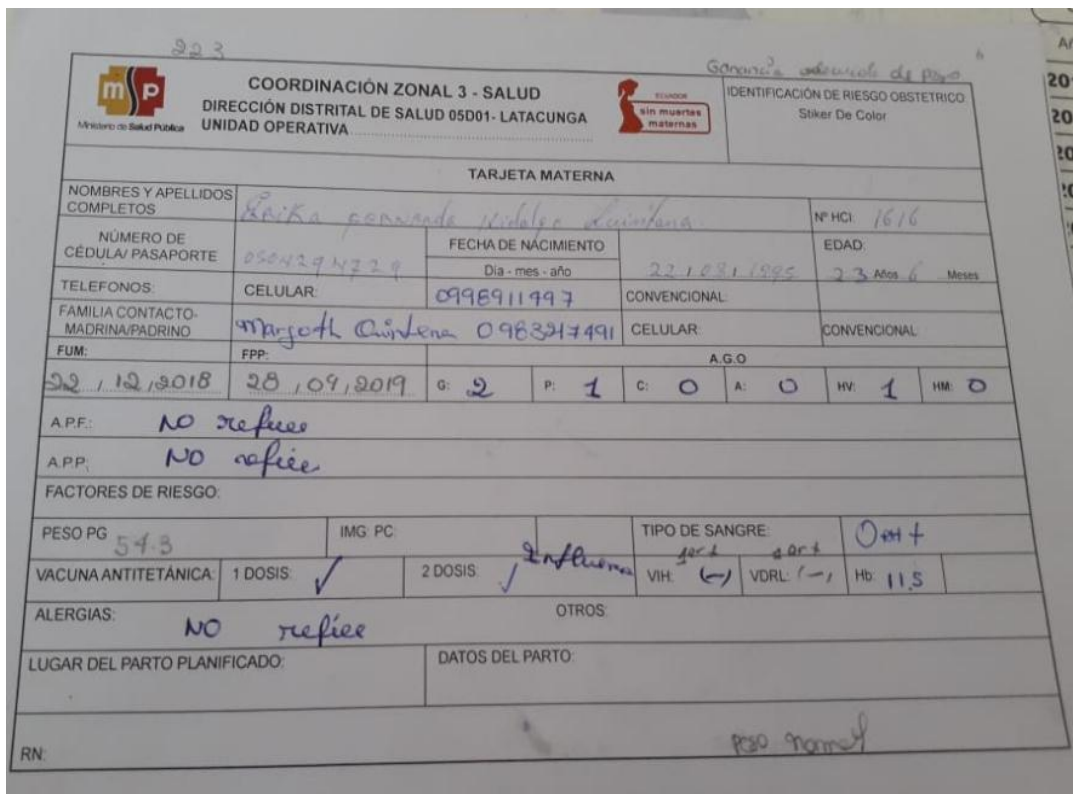 223
Ganancia adecuada de peso
msp
Ministerio de Salud Pública
COORDINACIÓN ZONAL 3 - SALUD
DIRECCIÓN DISTRITAL DE SALUD 05D01- LATACUNGA
UNIDAD OPERATIVA
ECUADOR
sin muertes
maternas
IDENTIFICACIÓN DE RIESGO OBSTETRICO
Stiker De Color
TARJETA MATERNA
NOMBRES Y APELLIDOS COMPLETOS Erika Fernanda Hidalgo Quintana Nº HCl: 1616
NÚMERO DE CÉDULA/ PASAPORTE 0504294729 FECHA DE NACIMIENTO Dia - mes - año 22 / 08 / 1995 EDAD: 23 Años 6 Meses
TELEFONOS: CELULAR: 0998911997 CONVENCIONAL:
FAMILIA CONTACTO- MADRINA/PADRINO Margoth Quintana 0983247491 CELULAR: CONVENCIONAL:
FUM: FPP: A.G.O
22 / 12 / 2018 28 / 09 / 2019 G: 2 P: 1 C: 0 A: 0 HV: 1 HM: 0
A.P.F.: NO refiere
A.P.P; NO refiere
FACTORES DE RIESGO:
PESO PG 54.3 IMG: PC: TIPO DE SANGRE: O RH +
VACUNA ANTITETÁNICA: 1 DOSIS: ✓ 2 DOSIS: ✓ Influenza VIH: 1er t (-) VDRL: 1er t (-) Hb: 11,5
ALERGIAS: NO refiere OTROS:
LUGAR DEL PARTO PLANIFICADO: DATOS DEL PARTO:
RN: peso normal